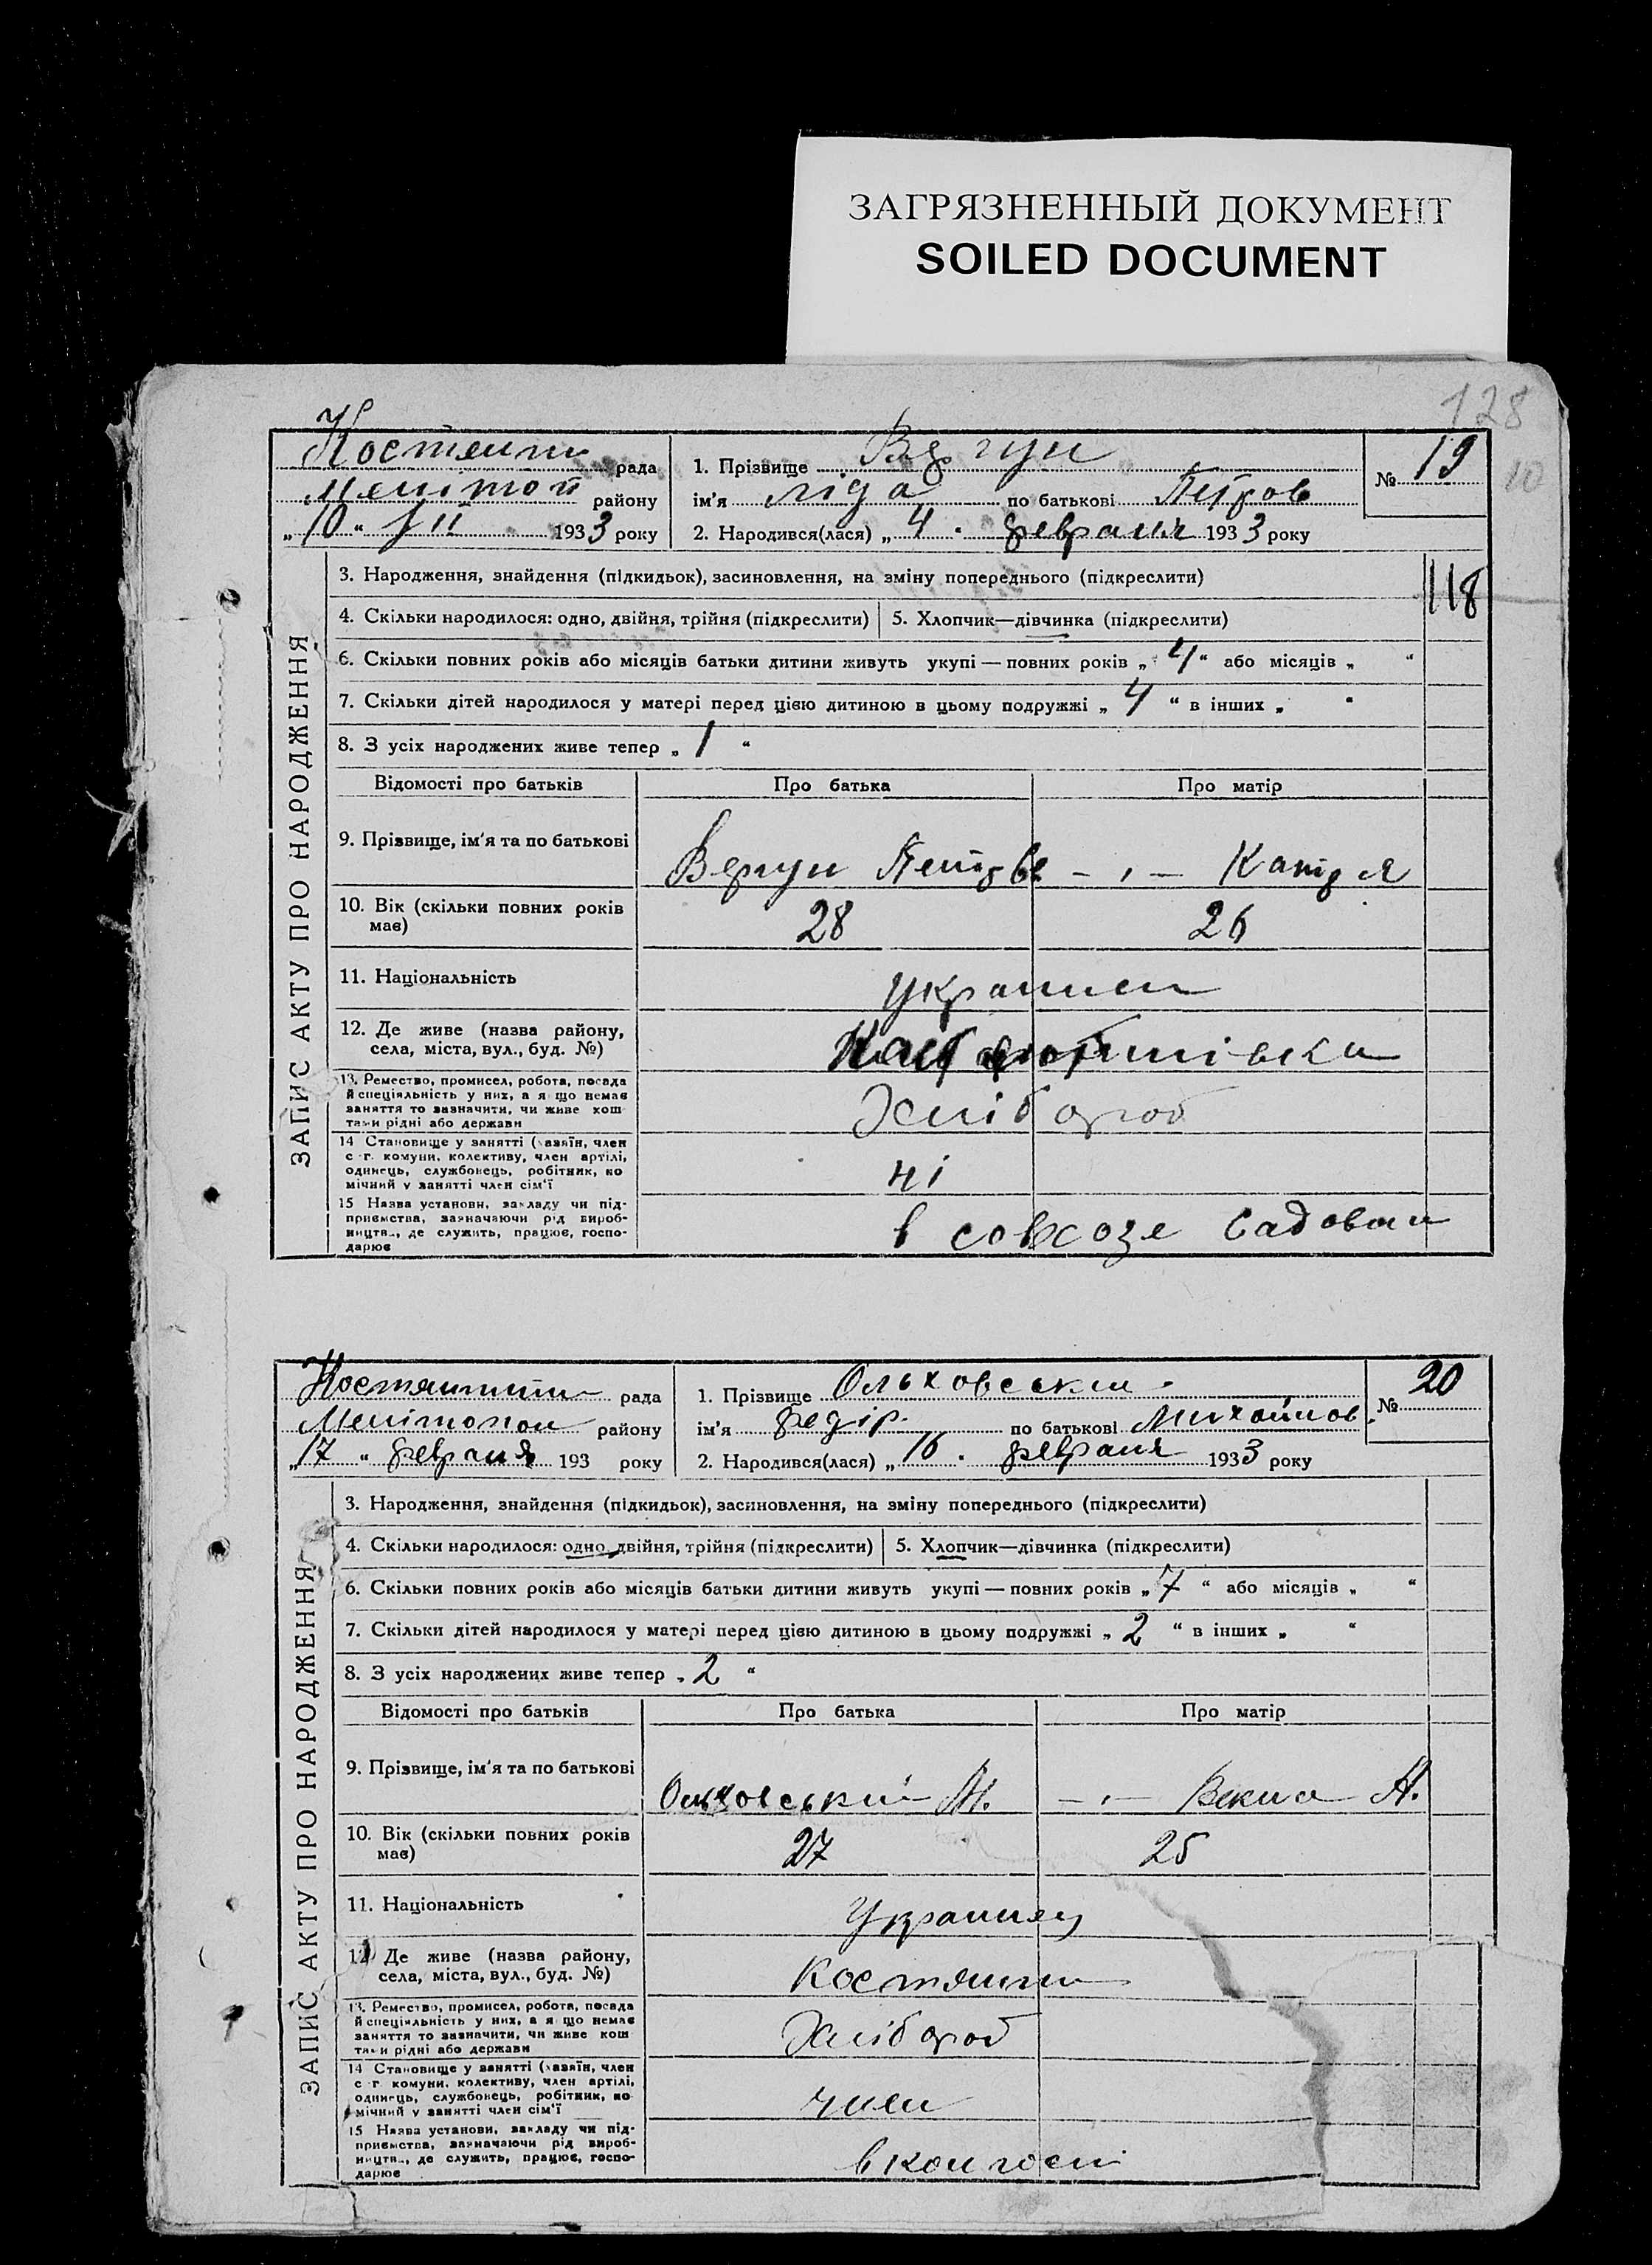 ЗАГРЯЗНЕННЫЙ ДОКУМЕНТ
SOILED DOCUMENT
128
рада
1. Прізвище
№ 19
району
ім'я Ліда по батькові Петров
10
„10“ 1933 року
2. Народився(лася) „4 февраля 1933 року
ЗАПИС АКТУ ПРО НАРОДЖЕННЯ
3. Народження, знайдення (підкидьок), засиновлення, на зміну попереднього (підкреслити)
118
4. Скільки народилося: одно, двійня, трійня (підкреслити) 5. Хлопчик—дівчинка (підкреслити)
6. Скільки повних років або місяців батьки дитини живуть укупі — повних років „4“ або місяців „ “
7. Скільки дітей народилося у матері перед цією дитиною в цьому подружжі „4“ в інших „ “
8. З усіх народжених живе тепер „1“
Відомості про батьків Про батька Про матір
9. Прізвище, ім'я та по батькові
Вергун – „ –
10. Вік (скільки повних років має)
28 26
11. Національність
12. Де живе (назва району, села, міста, вул., буд. №)
13. Ремество, промисел, робота, посада й спеціяльність у них, а якщо немає заняття то зазначити, чи живе коштами рідні або держави
Хлібороб
14 Становище у занятті (хазяїн, член с.-г. комуни, колективу, член артілі, одинець, службовець, робітник, помічний у занятті член сім'ї
ні
15 Назва установи, закладу чи підприємства, зазначаючи рід виробництва, де служить, працює, господарює
в совхозе
рада
1. Прізвище Ольховськи
№ 20
району
ім'я Федір по батькові Михайлов.
„17“ февраля 193 року
2. Народився(лася) „16 февраля 1933 року
ЗАПИС АКТУ ПРО НАРОДЖЕННЯ
3. Народження, знайдення (підкидьок), засиновлення, на зміну попереднього (підкреслити)
4. Скільки народилося: одно, двійня, трійня (підкреслити) 5. Хлопчик—дівчинка (підкреслити)
6. Скільки повних років або місяців батьки дитини живуть укупі — повних років „7“ або місяців „ “
7. Скільки дітей народилося у матері перед цією дитиною в цьому подружжі „2“ в інших „ “
8. З усіх народжених живе тепер „2“
Відомості про батьків Про батька Про матір
9. Прізвище, ім'я та по батькові
Ольховський М. – „ –
10. Вік (скільки повних років має)
27 25
11. Національність
Украинец
12. Де живе (назва району, села, міста, вул., буд. №)
13. Ремество, промисел, робота, посада й спеціяльність у них, а якщо немає заняття то зазначити, чи живе коштами рідні або держави
Хлібороб
14 Становище у занятті (хазяїн, член с.-г. комуни, колективу, член артілі, одинець, службовець, робітник, помічний у занятті член сім'ї
член
15 Назва установи, закладу чи підприємства, зазначаючи рід виробництва, де служить, працює, господарює